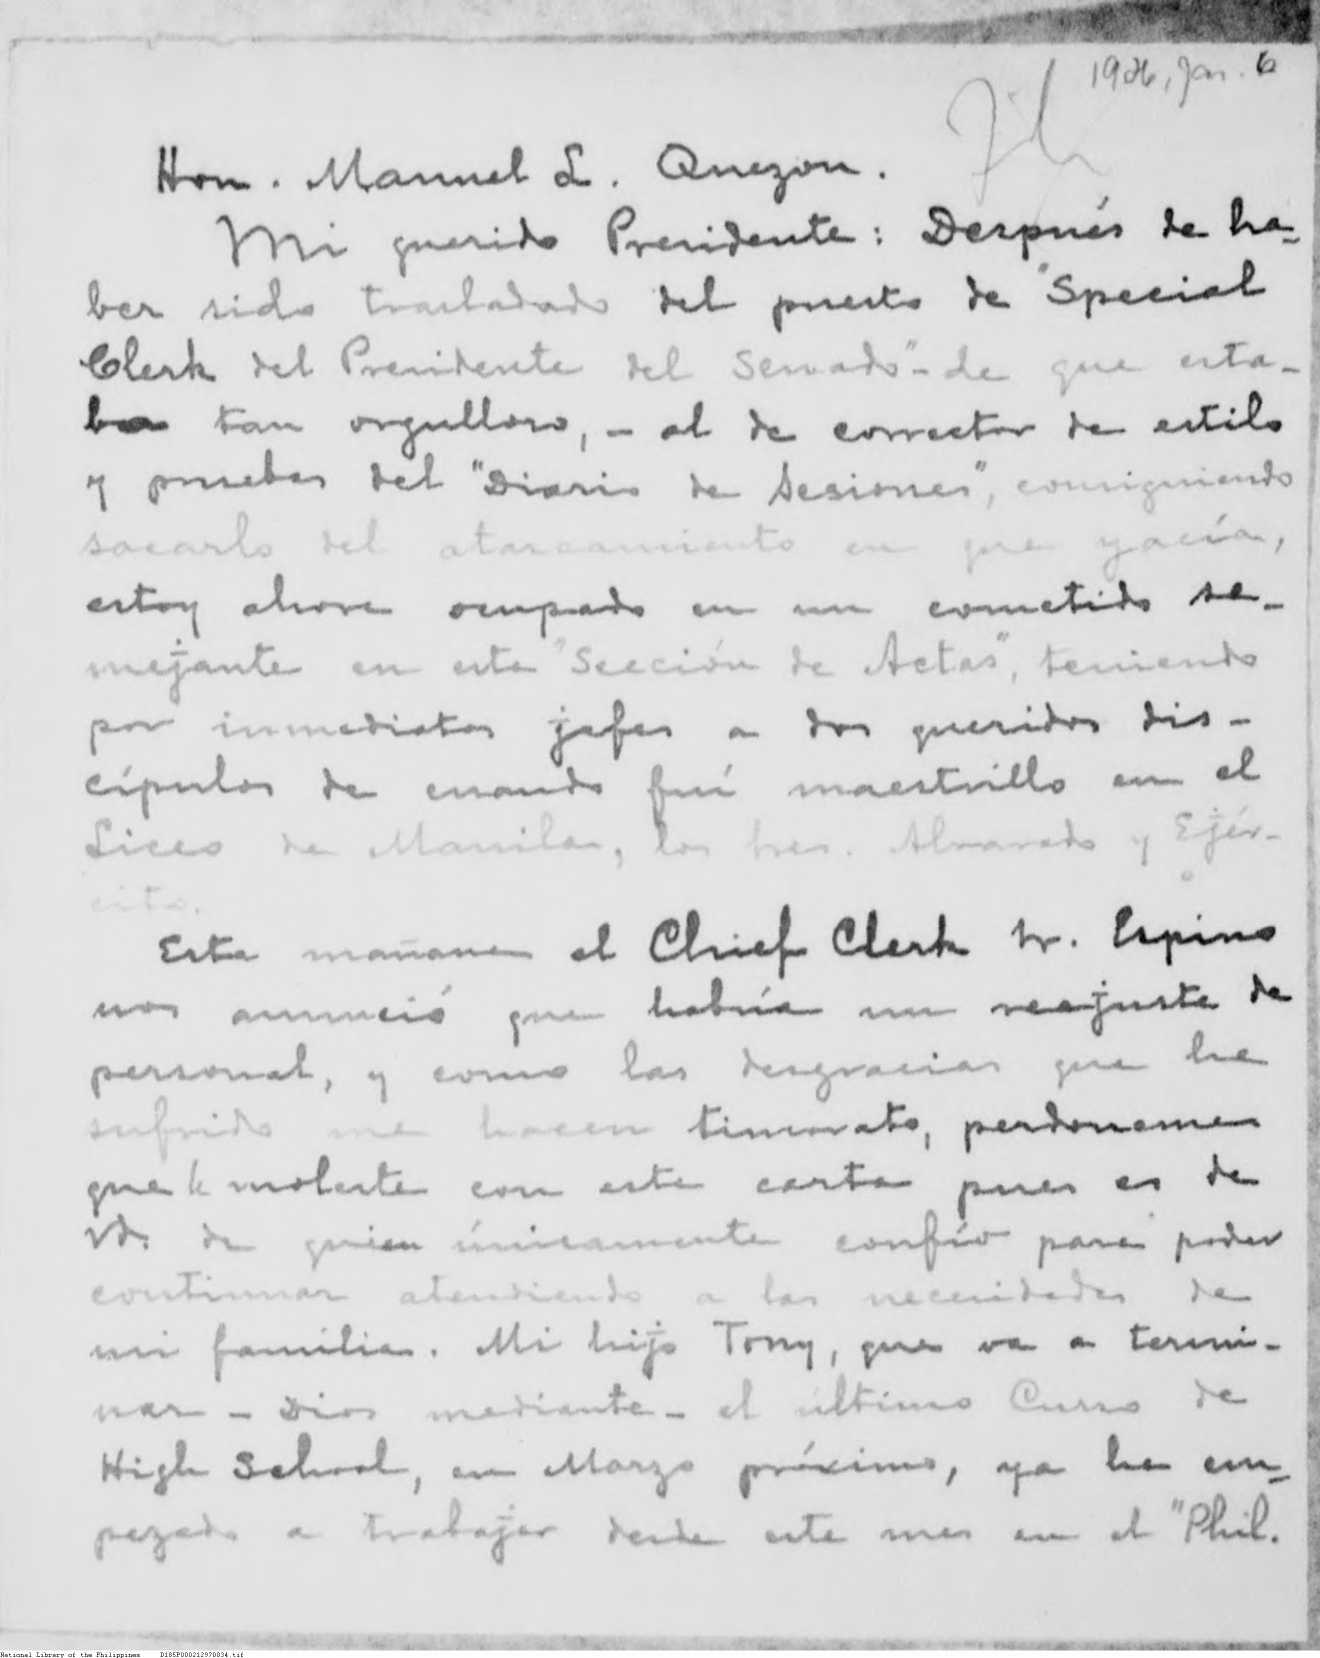 1926, Jan. 6
Hon. Manuel L. Quezon.
Mi querido Presidente: Después de ha-
ber sido trasladado del puesto de "Special
Clerk del Presidente del Senado" - de que esta-
ba tan orgulloso, - al de corrector de estilo
y pruebas del "Diario de Sesiones", consiguiendo
sacarlo del atascamiento en que yacía,
estoy ahora ocupado en un cometido se-
mejante en esta "Sección de Actas", teniendo
por inmediatos jefes a dos queridos dis-
cípulos de cuando fuí maestrillo en el
Liceo de Manila, los Sres. Alvarado y Ejér-
cito.
Esta mañana el Chief Clerk Sr. Espino
nos anunció que habría un reajuste de
personal, y como las desgracias que he
sufrido me hacen timorato, perdoneme
que le moleste con esta carta pues es de
Vd. de quien únicamente confío para poder
continuar atendiendo a las necesidades de
mi familia. Mi hijo Tony, que va a termi-
nar - Dios mediante - el último Curso de
High School, en Marzo próximo, ya ha em-
pezado a trabajar desde este mes en el "Phil.
National Library of the Philippines D185P000212970834.tif